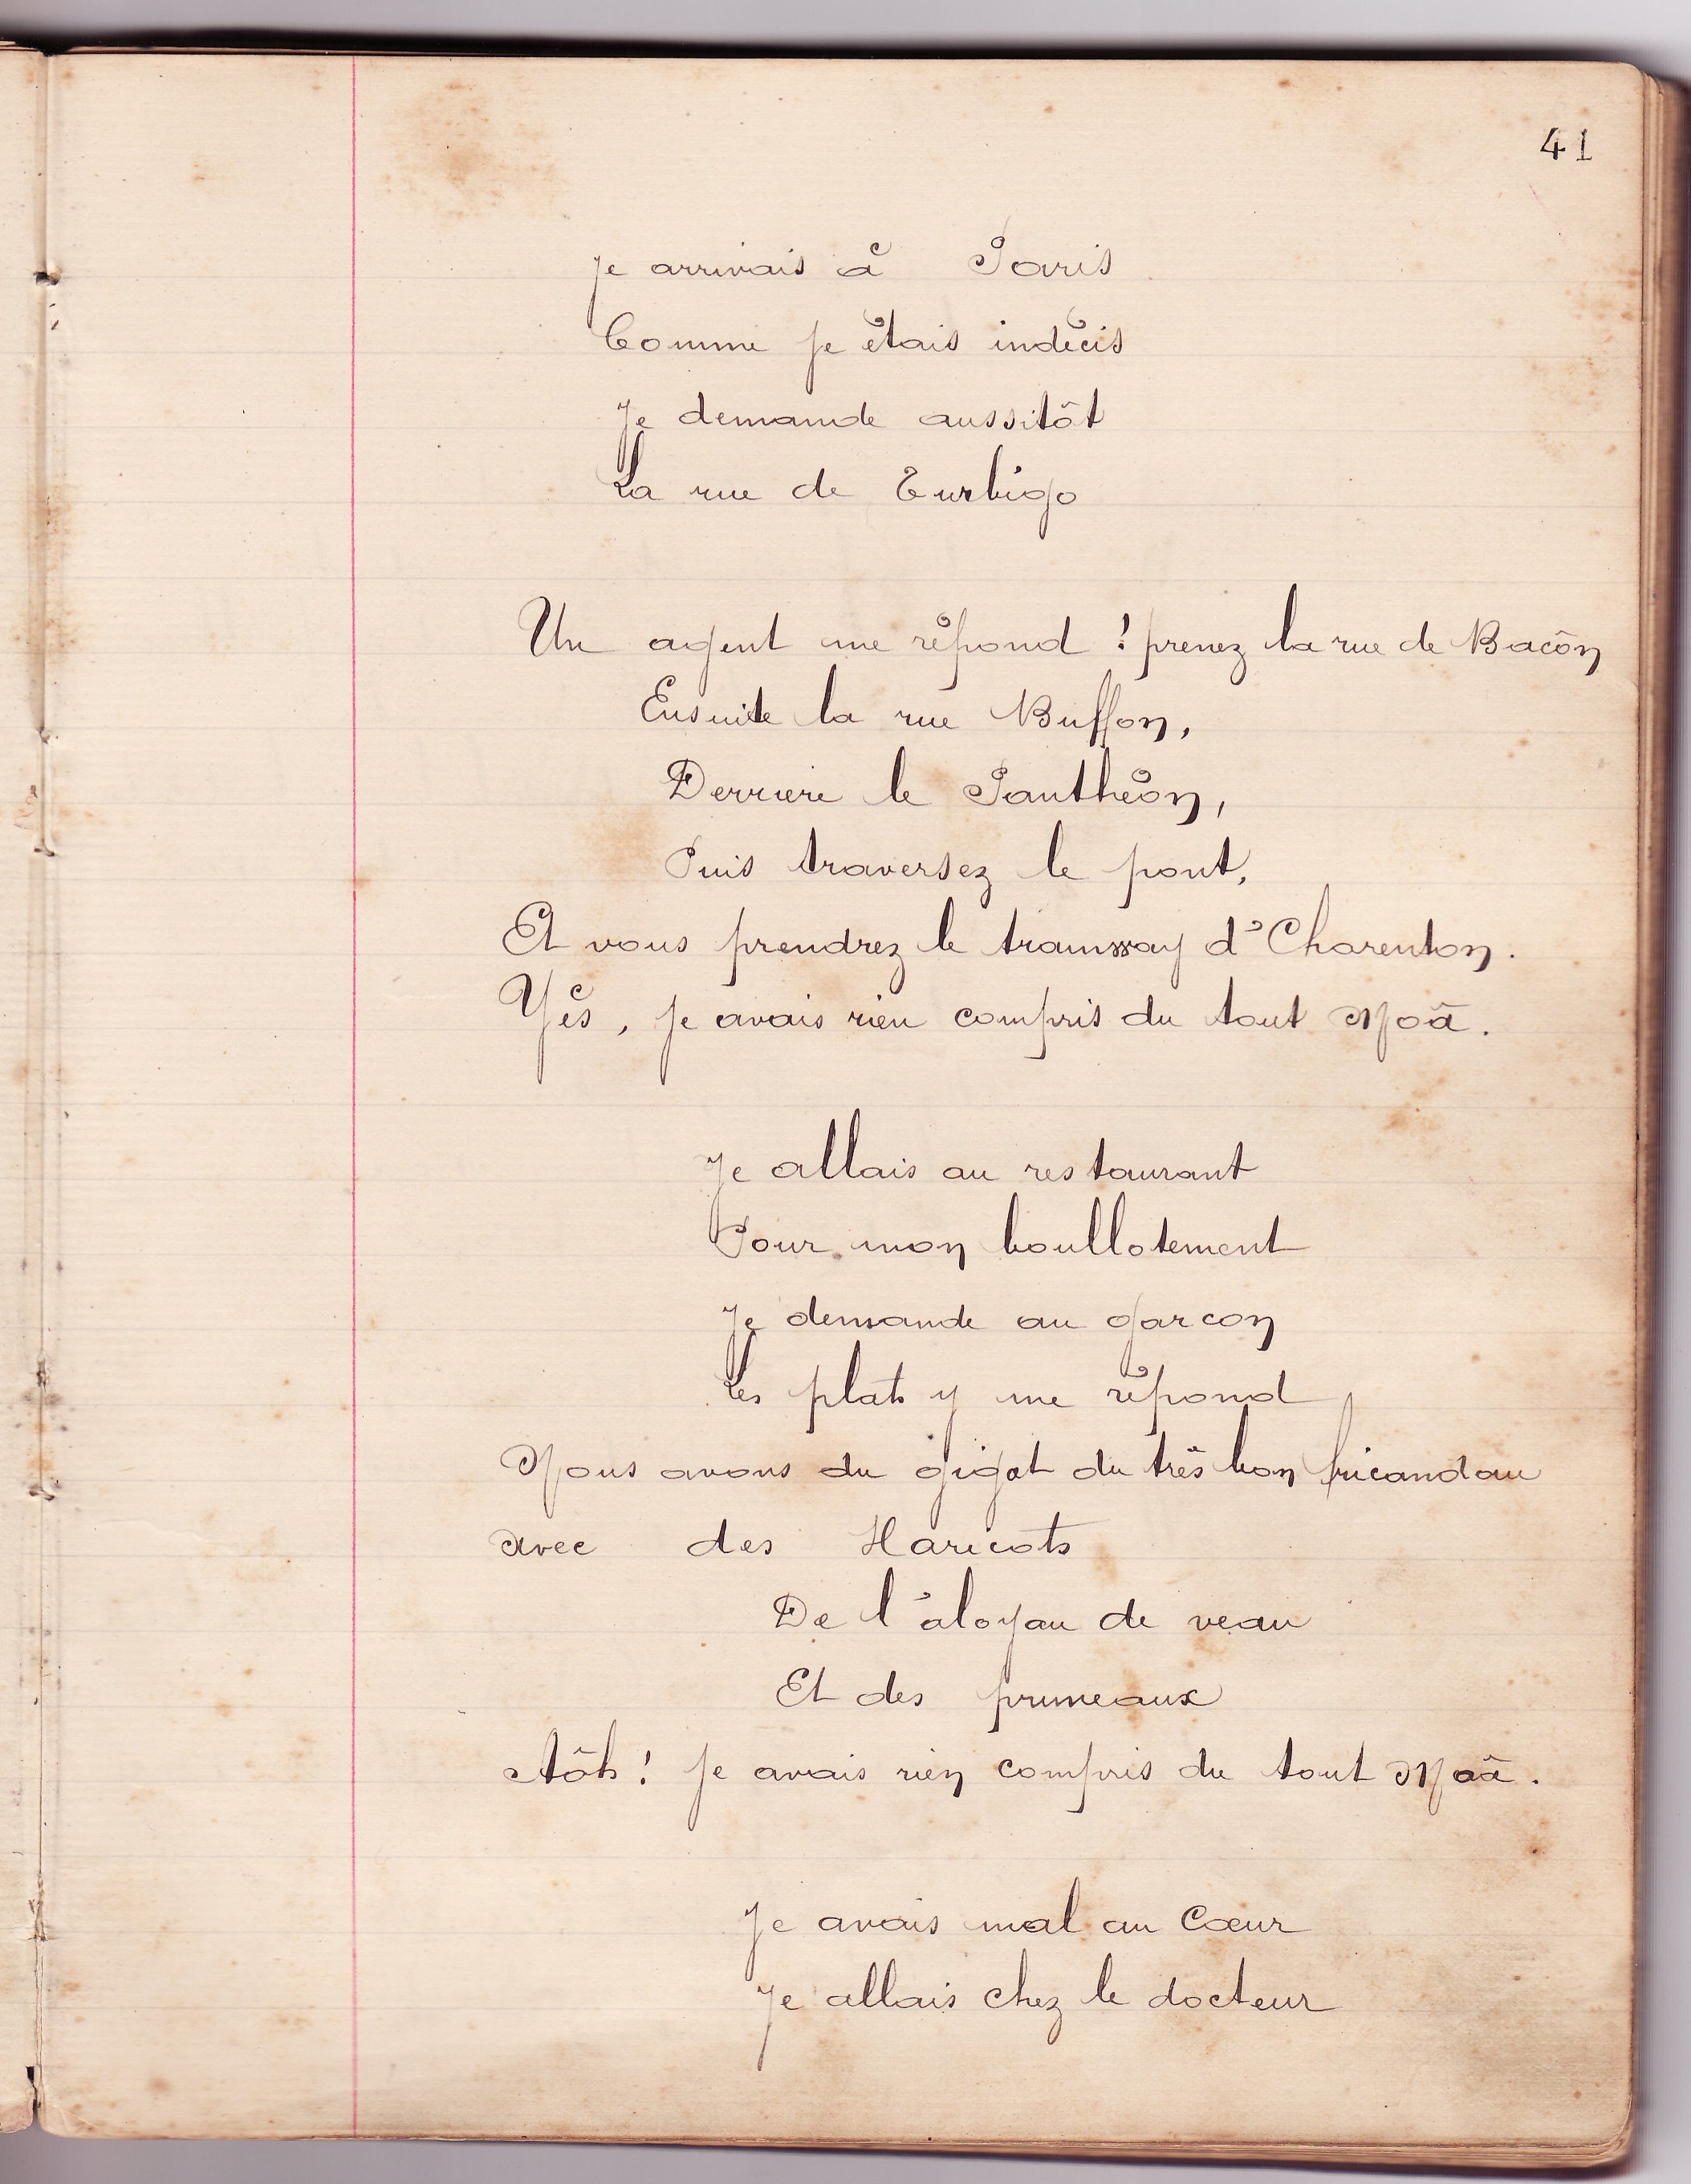 41
Je arrivais à Paris
Comme je étais indécis
Je demande aussitôt
La rue de Turbigo
Un agent me répond ! prenez la rue de Bacôn
Ensuite la rue Buffon,
Derriere le Panthéon,
Puis traversez le pont,
Et vous prendrez le tramway d'Charenton.
Yès, je avais rien compris du tout Moâ.
Je allais au restaurant
Pour mon boullotement
Je demande au garcon
Les plats y me répond
Nous avons du gigot du très bon fricandau
avec des Haricots
De l'aloyau de veau
Et des pruneaux
Aôh! je avais rien compris du tout Moâ.
Je avais mal au Cœur
Je allais chez le docteur